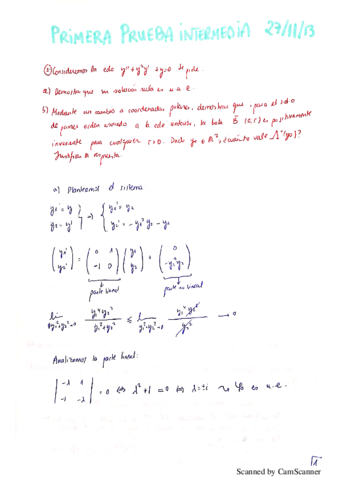 PRIMERA PRUEBA INTERMEDIA 27/11/13
① Consideremos la edo y'' + y²y' + y = 0 Se pide
a) Demostrar que su solución nula es u.a.e.
b) Mediante un cambio a coordenadas polares, demostrar que, para el sist
de primer orden asociado a la edo anterior, la bola B̄(0,r) es positivamente
invariante para cualquier r>0. Dado y₀ ∈ ℝ², ¿cuánto vale Λ⁺(y₀)?
Justifica la respuesta.
a) Planteamos el sistema
y₁ = y
y₂ = y' } → { y₁' = y₂
y₂' = -y₁²y₂ - y₁
(y₁' y₂') = (0 1 -1 0) (y₁ y₂) + (0 -y₁²y₂)
parte lineal parte no lineal
lim y₁⁴y₂² / y₁²+y₂² ≤ lim y₁⁴y₂² / y₂² → 0
Analizamos la parte lineal:
|-λ 1 -1 -λ| = 0 ⇔ λ²+1 = 0 ⇔ λ = ±i ⇝ es u.e.
Scanned by CamScanner